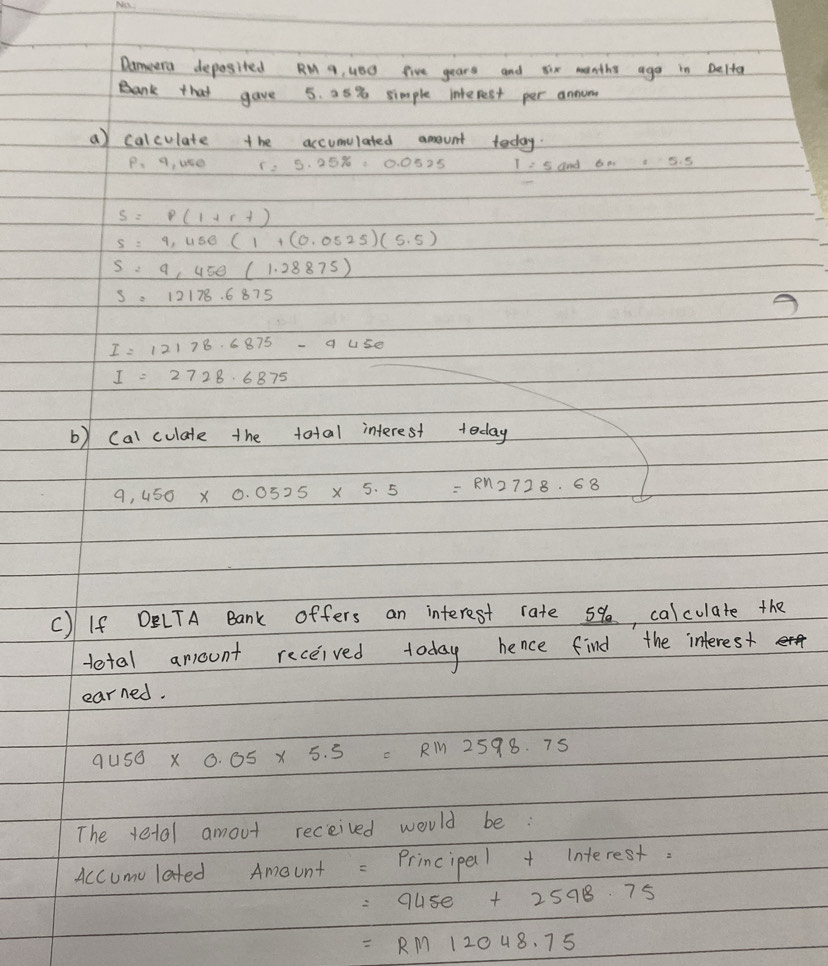 No.
Dameera deposited RM 9,450 five years and six months ago in Delta
Bank that gave 5.25% simple interest per annum
a) calculate the accumulated amount today.
P = 9,450 r = 5.25% = 0.0525 T = 5 and 6m = 5.5
S = P(1+rt)
S = 9,450 (1 + (0.0525)(5.5)
S = 9,450 (1.28875)
S = 12178.6875
I = 12178.6875 - 9450
I = 2728.6875
b) Calculate the total interest today
9,450 x 0.0525 x 5.5 = RM2728.68
c) If DELTA Bank offers an interest rate 5%, calculate the
total amount received today hence find the interest
earned.
9450 x 0.05 x 5.5 = RM 2598.75
The total amout received would be :
Accumulated Amount = Principal + Interest =
= 9450 + 2598.75
= RM 12048.75